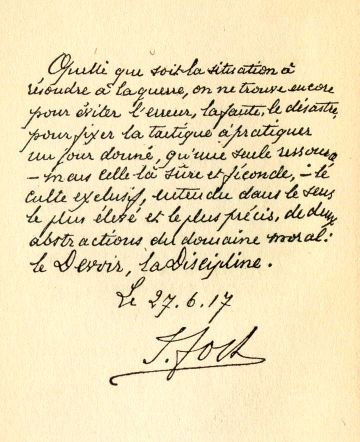 Quelle que soit la situation à
résoudre à la guerre, on ne trouve encore
pour éviter l'erreur, la faute, le désastre,
pour fixer la tactique à pratiquer
un jour donné, qu'une seule ressource
– mais celle là sûre et féconde, – le
culte exclusif, entendu dans le sens
le plus élevé et le plus précis, de deux
abstractions du domaine moral:
le Devoir, la Discipline.
Le 27.6.17
F. Foch